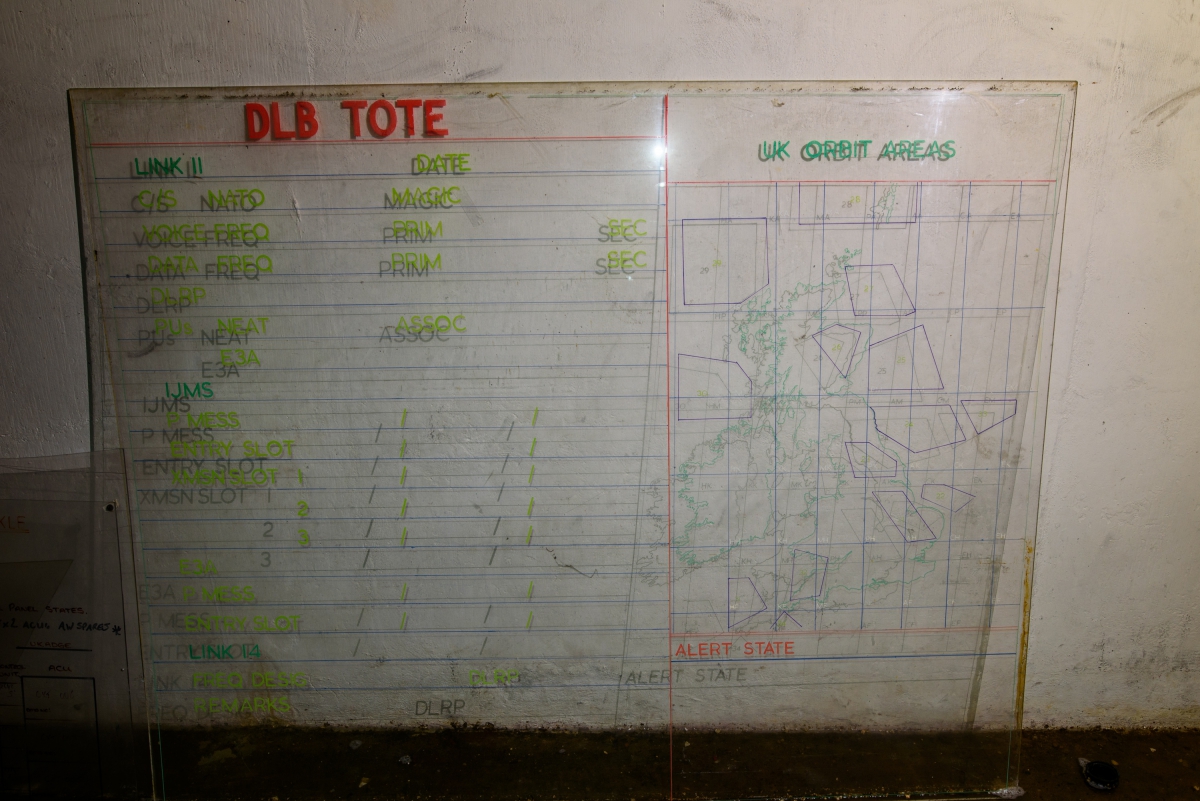 DLB TOTE
LINK 11 DATE
C/S NATO MAGIC
VOICE FREQ PRIM SEC
DATA FREQ PRIM SEC
DLRP
PUs NEAT ASSOC
E3A
IJMS
P MESS / /
ENTRY SLOT / /
XMSN SLOT 1 / /
2 / /
3 / /
E3A
P MESS / /
ENTRY SLOT / /
LINK 14
FREQ DESIG DLRP
REMARKS
UK ORBIT AREAS
ALERT STATE
KLE
PANEL STATES.
ACU